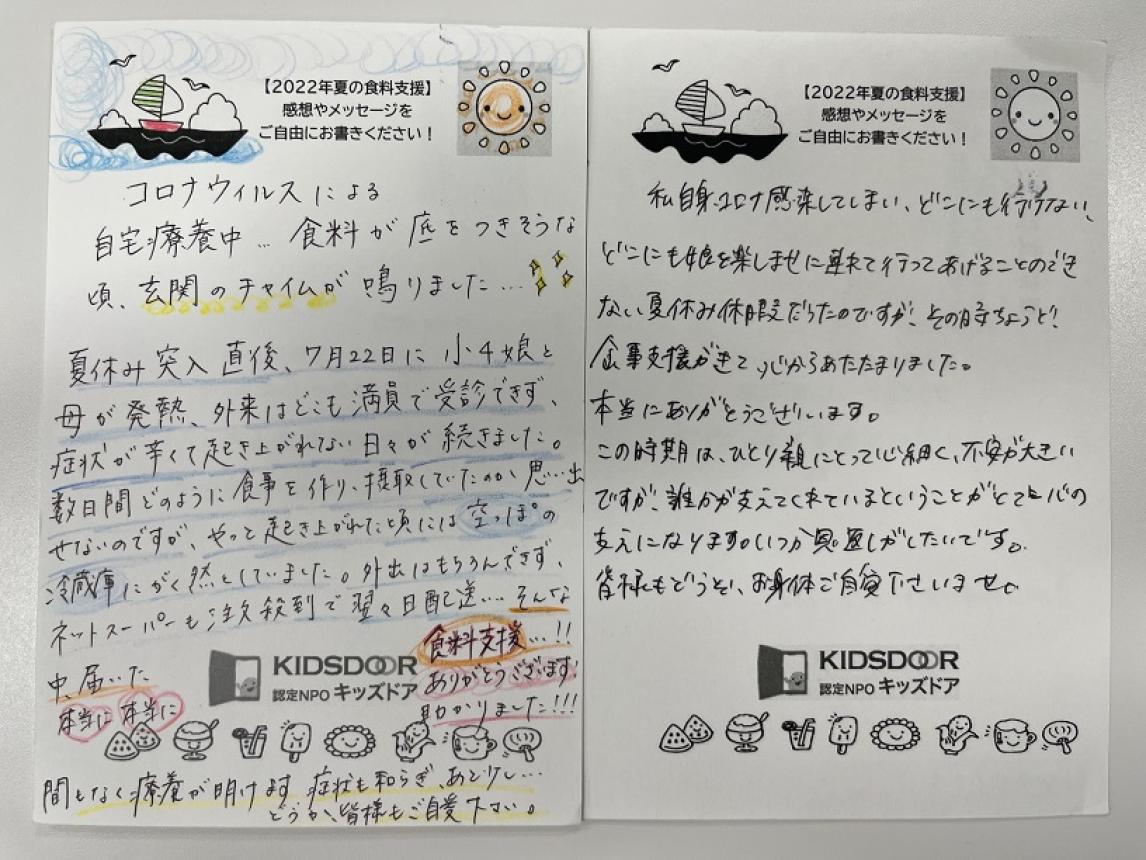 【2022年夏の食料支援】
感想やメッセージを
ご自由にお書きください！
コロナウィルスによる
自宅療養中… 食料が底をつきそうな
頃、玄関のチャイムが鳴りました…
夏休み突入直後、7月22日に小4娘と
母が発熱、外来はどこも満員で受診できず、
症状が辛くて起き上がれない日々が続きました。
数日間どのように食事を作り、摂取していたのか思い出
せないのですが、やっと起き上がれた頃には空っぽの
冷蔵庫にがく然としていました。外出はもちろんできず、
ネットスーパーも注文殺到で翌々日配送… そんな
中、届いた
食料支援…!!
本当に本当に
ありがとうございます!
助かりました!!!
KIDSDOOR
認定NPO キッズドア
間もなく療養が明けます 症状も和らぎ、あと少し…
どうか、皆様もご自愛下さい。
【2022年夏の食料支援】
感想やメッセージを
ご自由にお書きください！
私自身コロナ感染してしまい、どこにも行けない、
どこにも娘を楽しませに連れて行ってあげることのでき
ない夏休み休暇だったのですが、その時ちょうど!
食事支援がきて心からあたたまりました。
本当にありがとうございます。
この時期は、ひとり親にとって心細く、不安が大きい
ですが、誰かが支えてくれているということがとても心の
支えになります。いつか恩返しがしたいです。
皆様もどうと、お身体ご自愛下さいませ。
KIDSDOOR
認定NPO キッズドア